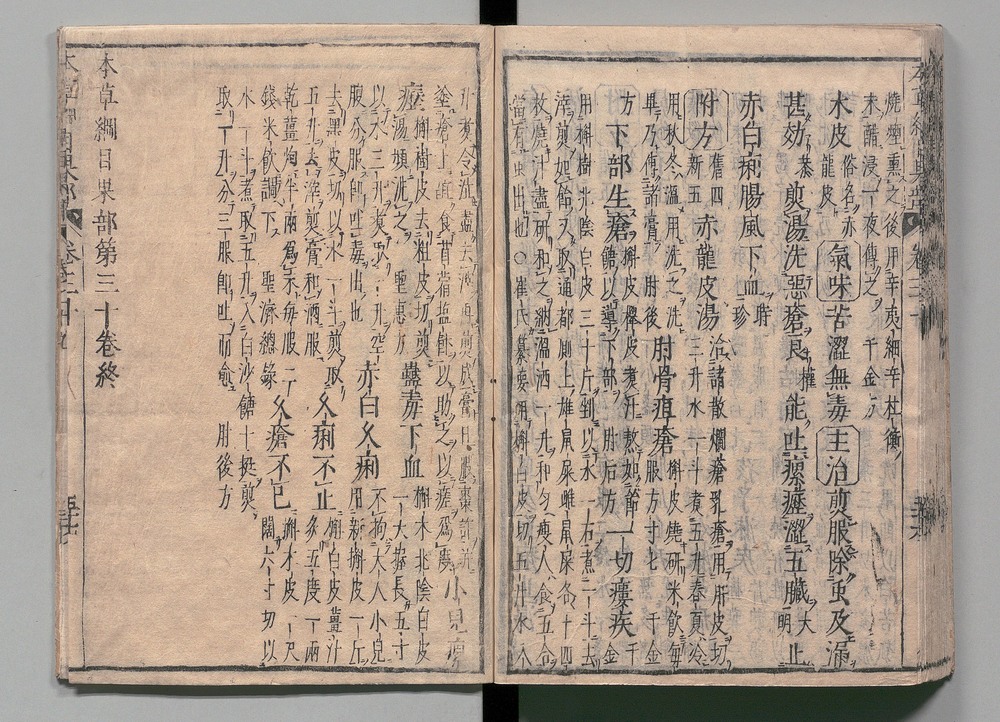 燒煙熏之後用辛夷細辛杜衡
末醋浸一夜傅之 千金方
木皮 俗名赤龍皮 氣味苦澀無毒 主治 煎服除蟲及漏
甚効 恭 煎湯洗惡瘡良 權 能吐瘰癧澀五臟 大明 止
赤白痢腸風下血 時珍
附方 舊四新五 赤龍皮湯 治諸散爛瘡乳瘡用肝皮切
三升水一斗煮五升春夏冷
用秋冬溫用洗之洗
畢乃傅諸膏 肘後 附骨疽瘡 槲皮燒研米飲每
服方寸匕 千金
方 下部生瘡 槲皮櫸皮煮汁熬如飴
糖以導下部 肘后方 一切瘻疾 千金
用槲樹北陰白皮三十斤剉以水一石煮一斗去
滓煎如飴又取通都厠上雄鼠屎雌鼠屎各十四
枚燒汁盡研和之納溫酒一升和勻瘦人食五合
當有蟲出也○崔氏纂要用槲白皮切五升水八
升煮令
塗瘡上
以瘥為度 小兒瘰
癧 槲樹皮去粗皮切煎
湯頻洗之 聖惠方 蠱毒下血 槲木北陰白皮
一大握長五寸
以水三升煮取一升空
腹分服即吐毒出也 赤白久痢 不拘大人小兒
用新槲皮一斤
去黑皮切以水一斗煎取
五升去滓煎膏和酒服 久痢不止 槲白皮薑汁
炙五度一兩
乾薑炮半兩爲末每服二
錢米飲調下 聖濟總錄 久瘡不已 槲木皮一尺
闊六寸切以
水一斗煮取五升入白沙餹十挺煎
取一升分三服即吐而愈 肘後方
本草綱目果部第三十卷終